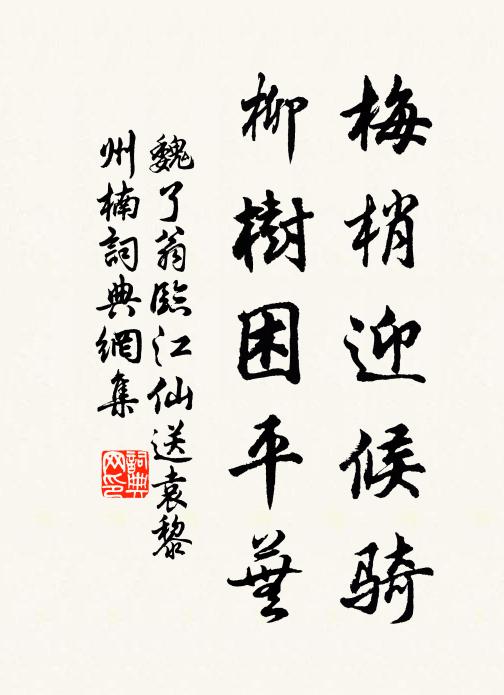 梅梢迎候骑
柳樹困平蕪
魏了翁臨江仙送袁黎
州楠詞典網集
詞典網印